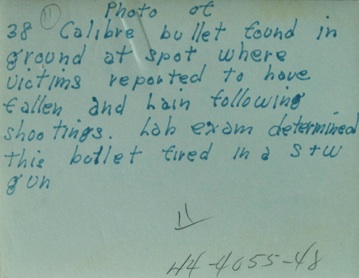 Photo of
(11)
38 Calibre bullet found in
ground at spot where
victims reported to have
fallen and Lain following
shootings. Lab exam determined
this bullet fired in a S+W
gun
11
44-4055-48